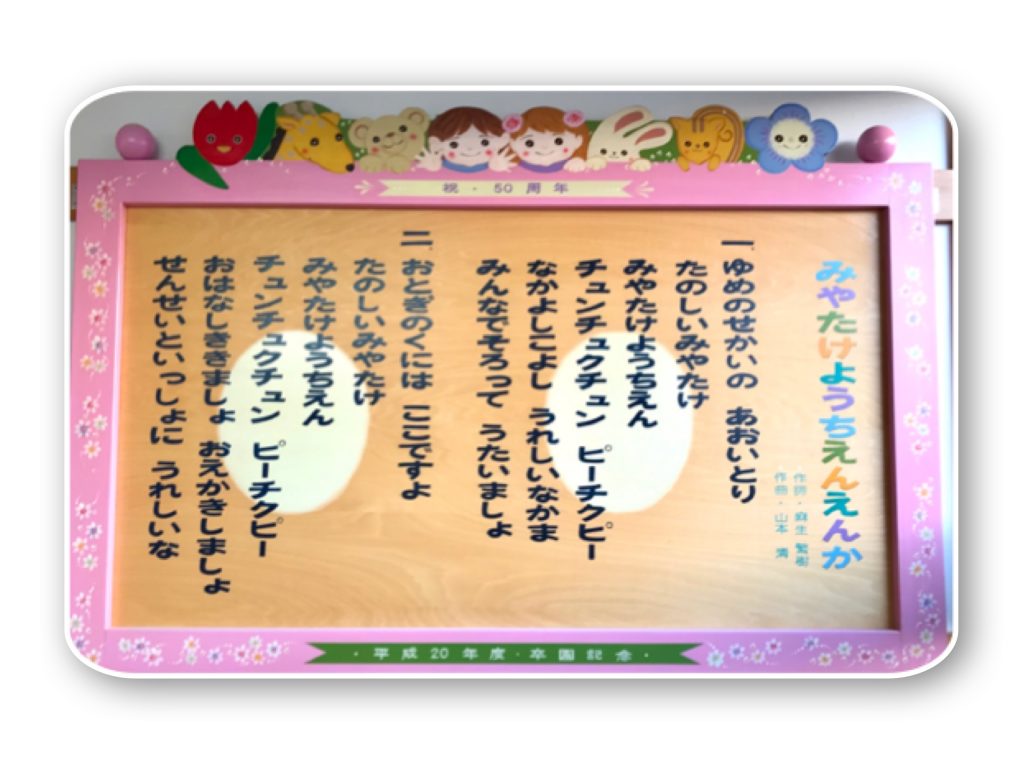 祝・50周年
みやたけようちえんえんか
作詞・麻生 繁樹
作曲・山本 清
一.ゆめのせかいの あおいとり
たのしいみやたけ
みやたけようちえん
チュンチュクチュン ピーチクピー
なかよしこよし うれしいなかま
みんなでそろって うたいましょ
二.おとぎのくには ここですよ
たのしいみやたけ
みやたけようちえん
チュンチュクチュン ピーチクピー
おはなしききましょ おえかきしましょ
せんせいといっしょに うれしいな
・平成20年度・卒園記念・